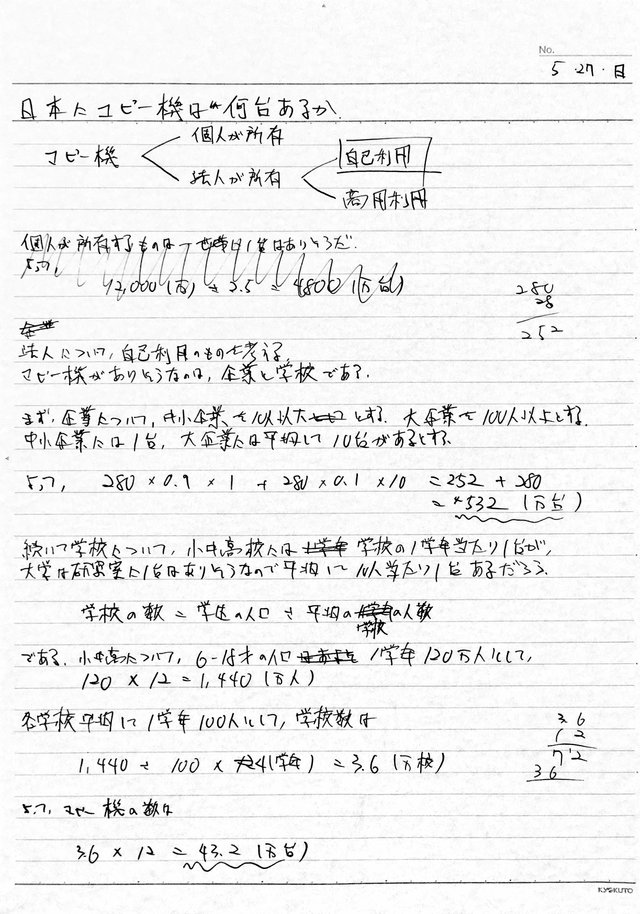 No.
5・27・日
日本にコピー機は何台あるか
コピー機
個人が所有
法人が所有
自己利用
商用利用
個人が所有するものは一世帯に1台はありそうだ.
よって,
12,000(万) ÷ 2.5 = 4800(万台)
280
28
252
法人について, 自己利用のものを考える.
コピー機がありそうなのは, 企業と学校である.
まず, 企業について, 中小企業を10人以上とする. 大企業を100人以上とする.
中小企業には1台, 大企業には平均して10台があるとする.
よって, 280 × 0.9 × 1 + 280 × 0.1 × 10 = 252 + 280
= 532 (万台)
続いて学校について, 小中高校には 学校の1学年当たり1台が,
大学は研究室に1台はありそうなので平均して 人当たり1台あるだろう.
学校の数 = 学生の人口 ÷ 平均の学校の人数
である. 小中高について, 6-18才の人口 1学年120万人にして,
120 × 12 = 1,440 (万人)
各学校平均して1学年100人にして, 学校数は
1,440 ÷ 100 × 4(学年) = 3.6 (万校)
3.6
12
72
36
よって, コピー機の数は
3.6 × 12 = 43.2 (万台)
KYOKUTO